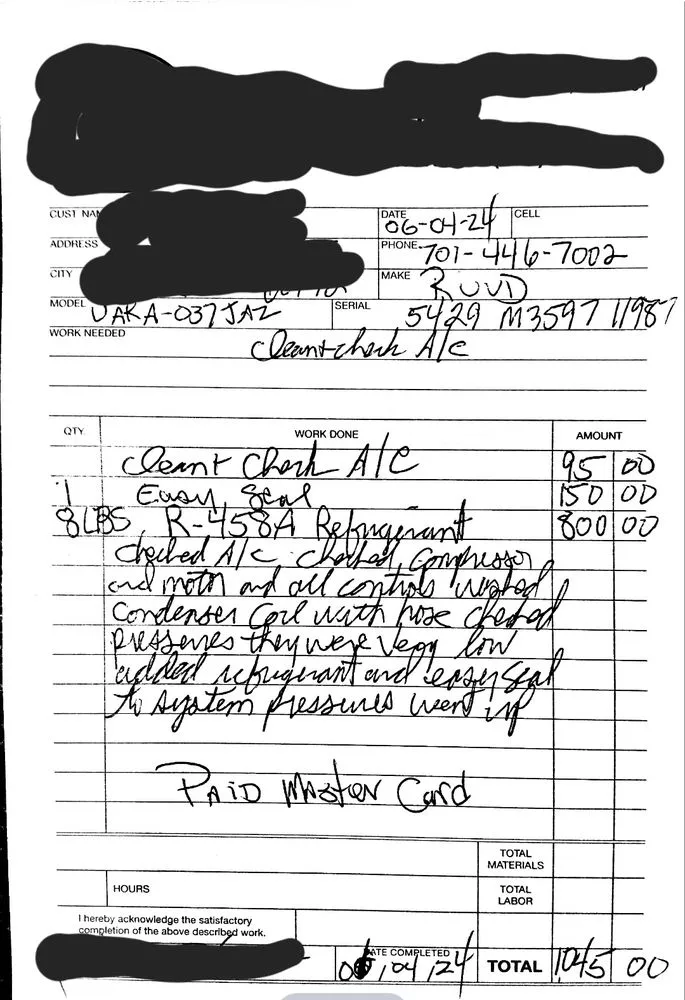 CUST NA
DATE 06-04-24 CELL
ADDRESS
PHONE 701-446-7002
CITY
MAKE RUUD
MODEL UAKA-037JAZ SERIAL 5429 M3597 11987
WORK NEEDED
Clean + check A/C
QTY. WORK DONE AMOUNT
Clean + Check A/C 95 00
1 Easy Seal 150 00
8 LBS R-458A Refrigerant 800 00
checked A/C checked compressor
and motor and all controls washed
condenser coil with hose checked
pressures they were very low
added refrigerant and easy seal
to system pressures went up
PAID Master Card
TOTAL MATERIALS
HOURS TOTAL LABOR
I hereby acknowledge the satisfactory
completion of the above described work.
DATE COMPLETED 06,04,24 TOTAL 1045 00